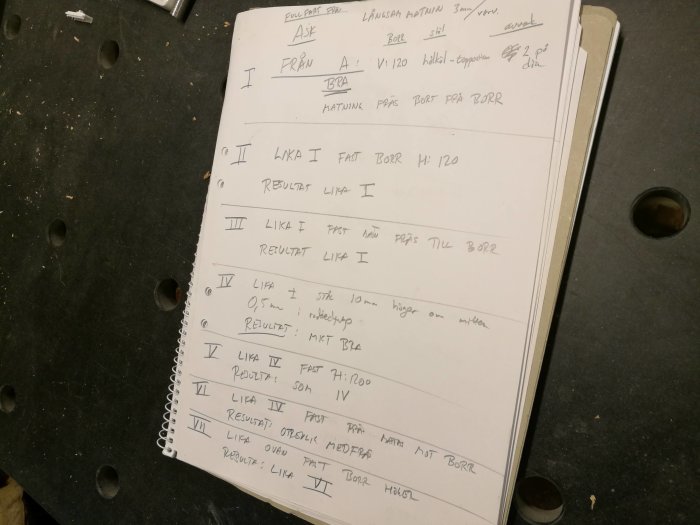 FULLFORT FRÅN LÅNGSAM MATNIN 3mm/varv.
ASK BORR stål avverk
I FRÅN A: V:120 hålkäl-toppsten 2 på dia
BRA
MATNING FRÄS BORT FRÅ BORR
II LIKA I FAST BORR H:120
RESULTAT LIKA I
III LIKA I FAST MAN FRÄS TILL BORR
RESULTAT LIKA I
IV LIKA I stål 10mm höger om mitten
0,5mm i
RESULTAT: MKT BRA
V LIKA IV FAST H:1200
RESULTA: SOM IV
VI LIKA IV FAST FRÄ MATAS MOT BORR
RESULTAT: MEDFRÄS
VII LIKA OVAN FAST BORR HÖGER
RESULTA: LIKA VI